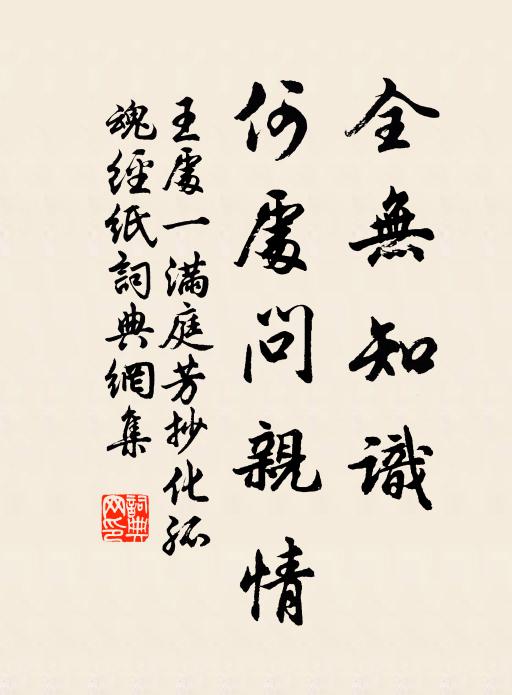 全無知識
何處問親情
王處一滿庭芳抄化孤
魂經紙詞典網集
詞典
网印